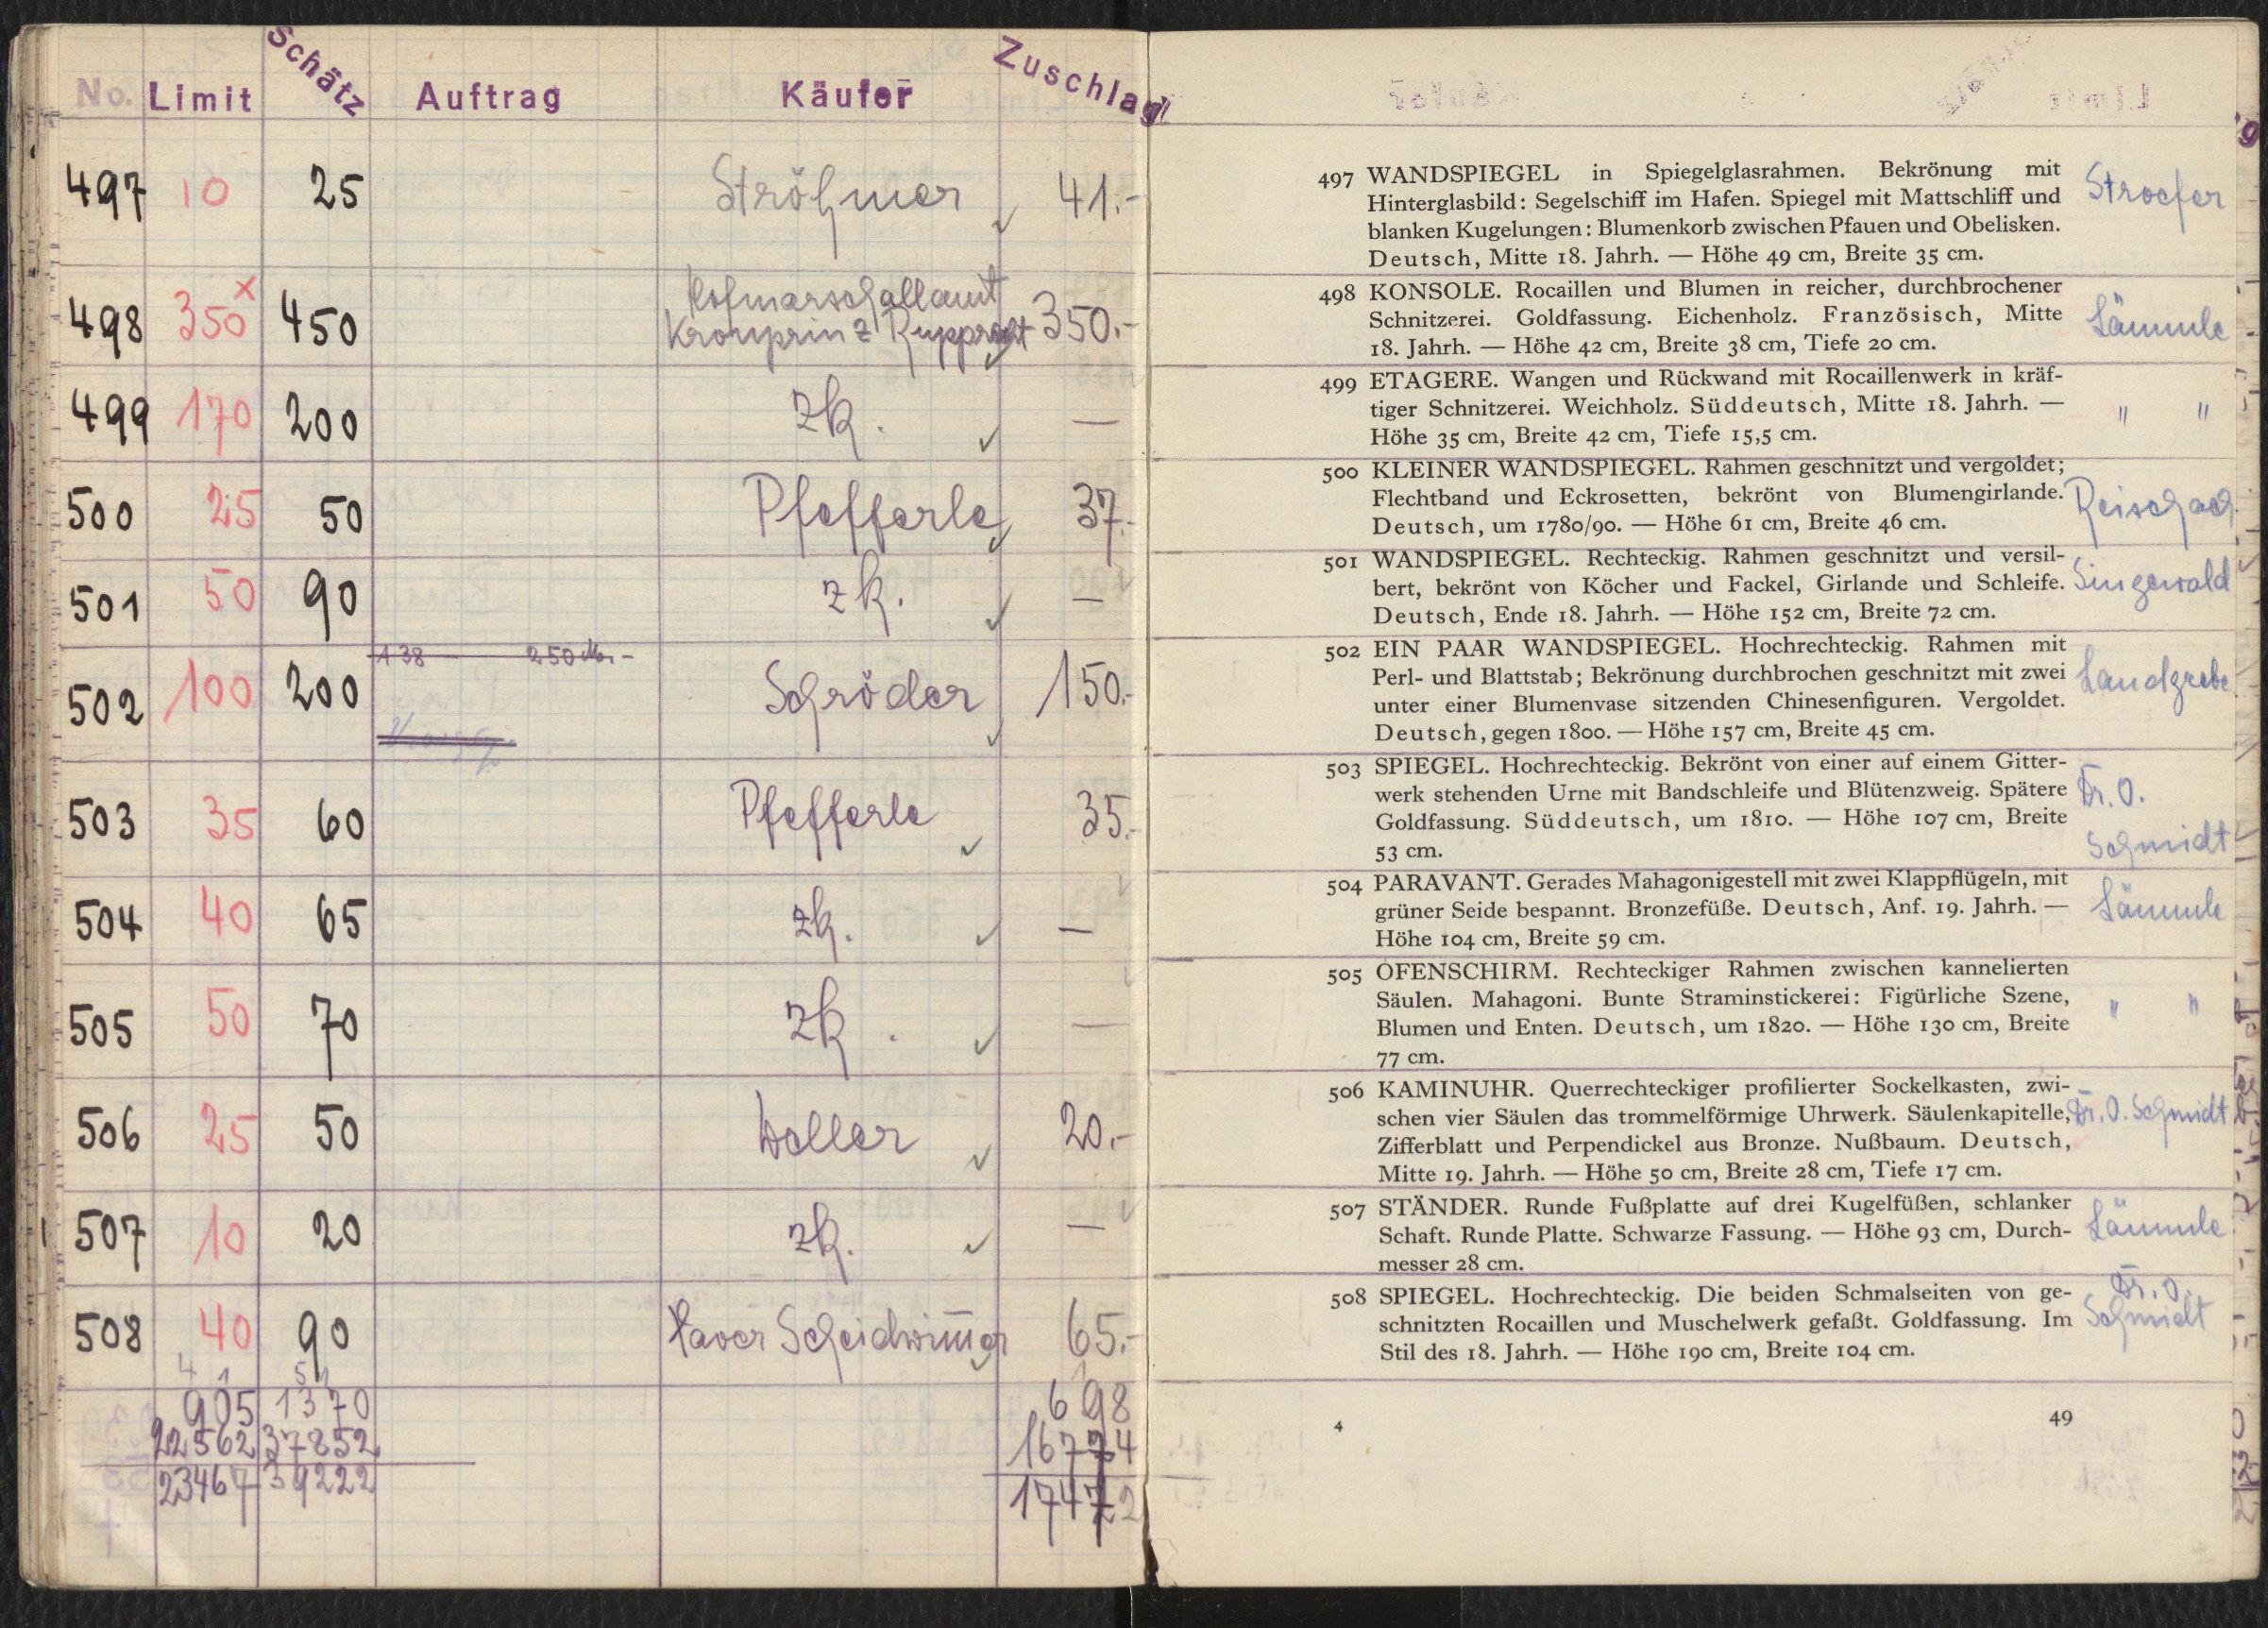 No. Limit Schätz Auftrag Käufer Zuschlag
497 10 25 Ströhmer 41.-
498 350 x 450 Hofmarschallamt
Kronprinz Rupprecht 350.-
499 170 200 zk. —
500 25 50 Pfefferle 37.-
501 50 90 zk. —
138 250 M. -
502 100 200 Schröder 150.-
503 35 60 Pfefferle 35.-
504 40 65 zk. —
505 50 70 zk. —
506 25 50 Woller 20.-
507 10 20 zk. —
508 40 90 Xaver Scheidwimmer 65.-
905 1370 698
22562 37852 16774
23467 39222 17472
497 WANDSPIEGEL in Spiegelglasrahmen. Bekrönung mit
Hinterglasbild: Segelschiff im Hafen. Spiegel mit Mattschliff und
blanken Kugelungen: Blumenkorb zwischen Pfauen und Obelisken.
Deutsch, Mitte 18. Jahrh. — Höhe 49 cm, Breite 35 cm.
Stroefer
498 KONSOLE. Rocaillen und Blumen in reicher, durchbrochener
Schnitzerei. Goldfassung. Eichenholz. Französisch, Mitte
18. Jahrh. — Höhe 42 cm, Breite 38 cm, Tiefe 20 cm.
Lämmle
499 ETAGERE. Wangen und Rückwand mit Rocaillenwerk in kräf-
tiger Schnitzerei. Weichholz. Süddeutsch, Mitte 18. Jahrh. —
Höhe 35 cm, Breite 42 cm, Tiefe 15,5 cm.
" "
500 KLEINER WANDSPIEGEL. Rahmen geschnitzt und vergoldet;
Flechtband und Eckrosetten, bekrönt von Blumengirlande.
Deutsch, um 1780/90. — Höhe 61 cm, Breite 46 cm.
Reischach
501 WANDSPIEGEL. Rechteckig. Rahmen geschnitzt und versil-
bert, bekrönt von Köcher und Fackel, Girlande und Schleife.
Deutsch, Ende 18. Jahrh. — Höhe 152 cm, Breite 72 cm.
Singewald
502 EIN PAAR WANDSPIEGEL. Hochrechteckig. Rahmen mit
Perl- und Blattstab; Bekrönung durchbrochen geschnitzt mit zwei
unter einer Blumenvase sitzenden Chinesenfiguren. Vergoldet.
Deutsch, gegen 1800. — Höhe 157 cm, Breite 45 cm.
Landgrebe
503 SPIEGEL. Hochrechteckig. Bekrönt von einer auf einem Gitter-
werk stehenden Urne mit Bandschleife und Blütenzweig. Spätere
Goldfassung. Süddeutsch, um 1810. — Höhe 107 cm, Breite
53 cm.
Dr. O.
Schmidt
504 PARAVANT. Gerades Mahagonigestell mit zwei Klappflügeln, mit
grüner Seide bespannt. Bronzefüße. Deutsch, Anf. 19. Jahrh. —
Höhe 104 cm, Breite 59 cm.
Lämmle
505 OFENSCHIRM. Rechteckiger Rahmen zwischen kannelierten
Säulen. Mahagoni. Bunte Straminstickerei: Figürliche Szene,
Blumen und Enten. Deutsch, um 1820. — Höhe 130 cm, Breite
77 cm.
" "
506 KAMINUHR. Querrechteckiger profilierter Sockelkasten, zwi-
schen vier Säulen das trommelförmige Uhrwerk. Säulenkapitelle,
Zifferblatt und Perpendickel aus Bronze. Nußbaum. Deutsch,
Mitte 19. Jahrh. — Höhe 50 cm, Breite 28 cm, Tiefe 17 cm.
Dr. O. Schmidt
507 STÄNDER. Runde Fußplatte auf drei Kugelfüßen, schlanker
Schaft. Runde Platte. Schwarze Fassung. — Höhe 93 cm, Durch-
messer 28 cm.
Lämmle
508 SPIEGEL. Hochrechteckig. Die beiden Schmalseiten von ge-
schnitzten Rocaillen und Muschelwerk gefaßt. Goldfassung. Im
Stil des 18. Jahrh. — Höhe 190 cm, Breite 104 cm.
Dr. O.
Schmidt
4 49